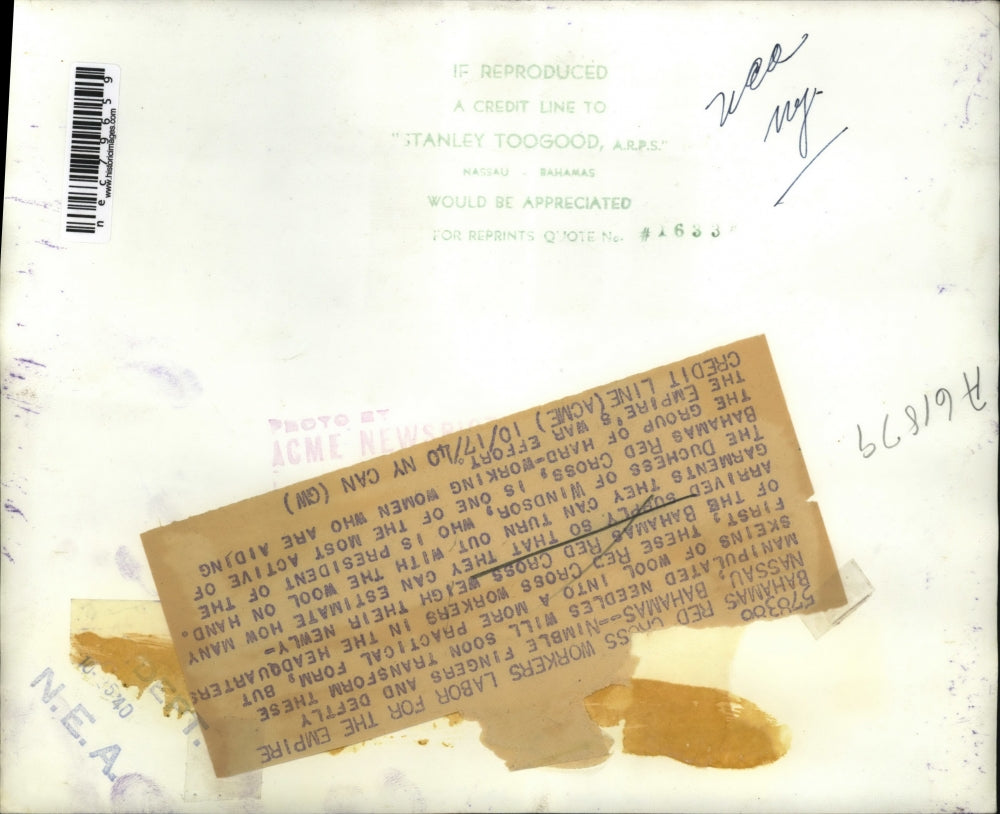 IF REPRODUCED
A CREDIT LINE TO
"STANLEY TOOGOOD, A.R.P.S."
NASSAU - BAHAMAS
WOULD BE APPRECIATED
FOR REPRINTS QUOTE No. #1633
nea
ny.
nec79659
www.historicimages.com
A61879
PHOTO BY
ACME NEWS
578366
BAHAMAS RED CROSS WORKERS LABOR FOR THE EMPIRE
NASSAU, BAHAMAS--NIMBLE FINGERS AND DEFTLY
MANIPULATED NEEDLES WILL SOON TRANSFORM THESE
SKEINS OF WOOL INTO A MORE PRACTICAL FORM, BUT
FIRST, THESE RED CROSS WORKERS IN THE HEADQUARTERS
OF THE BAHAMAS RED CROSS WEIGH THEIR NEWLY-
ARRIVED SUPPLY SO THAT THEY CAN ESTIMATE HOW MANY
GARMENTS THEY CAN TURN OUT WITH THE WOOL ON HAND.
THE DUCHESS OF WINDSOR, WHO IS PRESIDENT OF THE
BAHAMAS RED CROSS, IS ONE OF THE MOST ACTIVE OF
THE GROUP OF HARD-WORKING WOMEN WHO ARE AIDING
THE EMPIRE'S WAR EFFORT.
CREDIT LINE (ACME) 10/17/40 NY CAN (GW)
DEPT.
N.E.A.